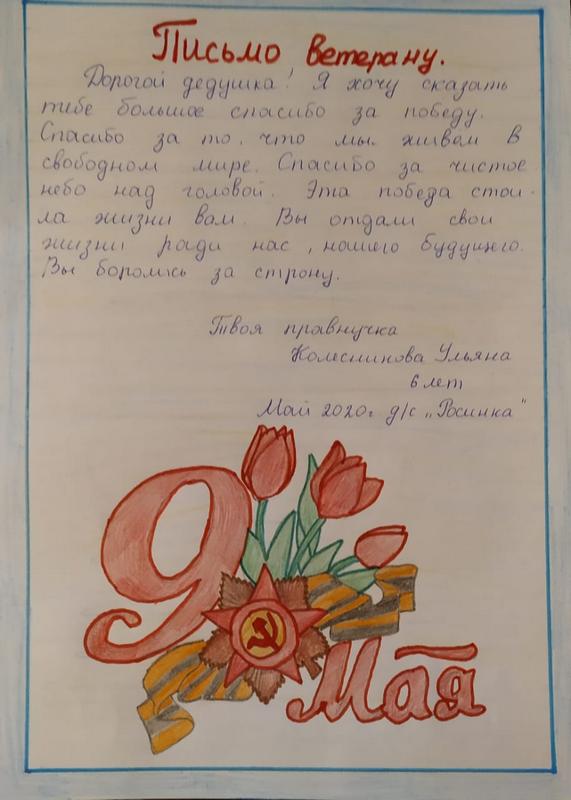 Письмо ветерану.
Дорогой дедушка! Я хочу сказать
тебе большое спасибо за победу.
Спасибо за то, что мы живем в
свободном мире. Спасибо за чистое
небо над головой. Эта победа стои-
ла жизни вам. Вы отдали свои
жизни ради нас, нашего будущего.
Вы боролись за строну.
Твоя правнучка
Колесникова Ульяна
6 лет
Май 2020г д/с „Росинка"
9
Мая